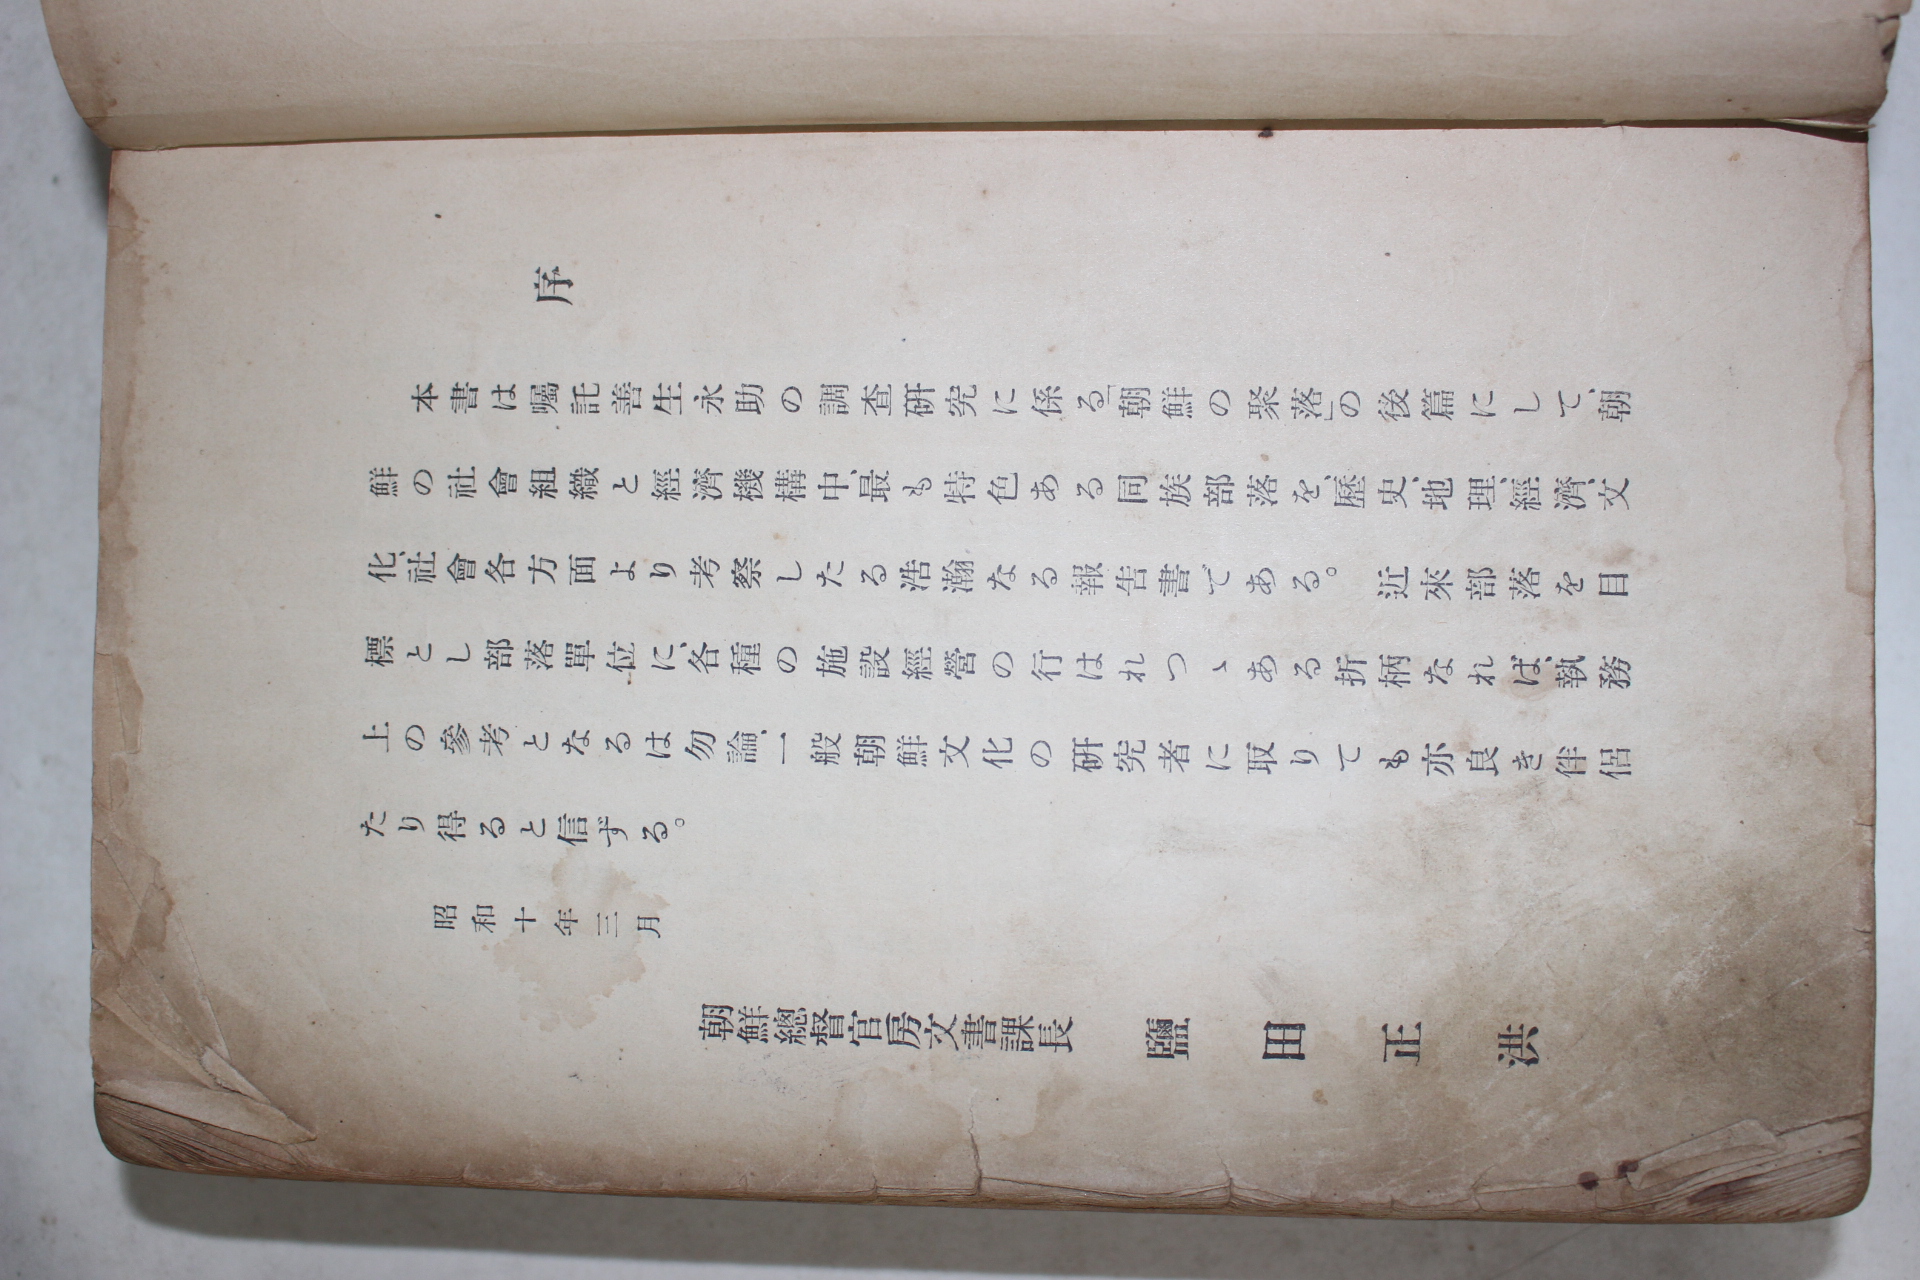 序
本書は囑託善生永助の調査研究に係る「朝鮮の聚落」の後篇にして、朝
鮮の社會組織と經濟機構中、最も特色ある同族部落を、歷史、地理、經濟、文
化、社會各方面より考察したる浩瀚なる報告書である。近來部落を目
標とし部落單位に、各種の施設經營の行はれつゝある折柄なれば、執務
上の參考となるは勿論、一般朝鮮文化の研究者に取りても亦良き伴侶
たり得ると信ずる。
昭和十年三月
朝鮮總督官房文書課長 鹽田正洪